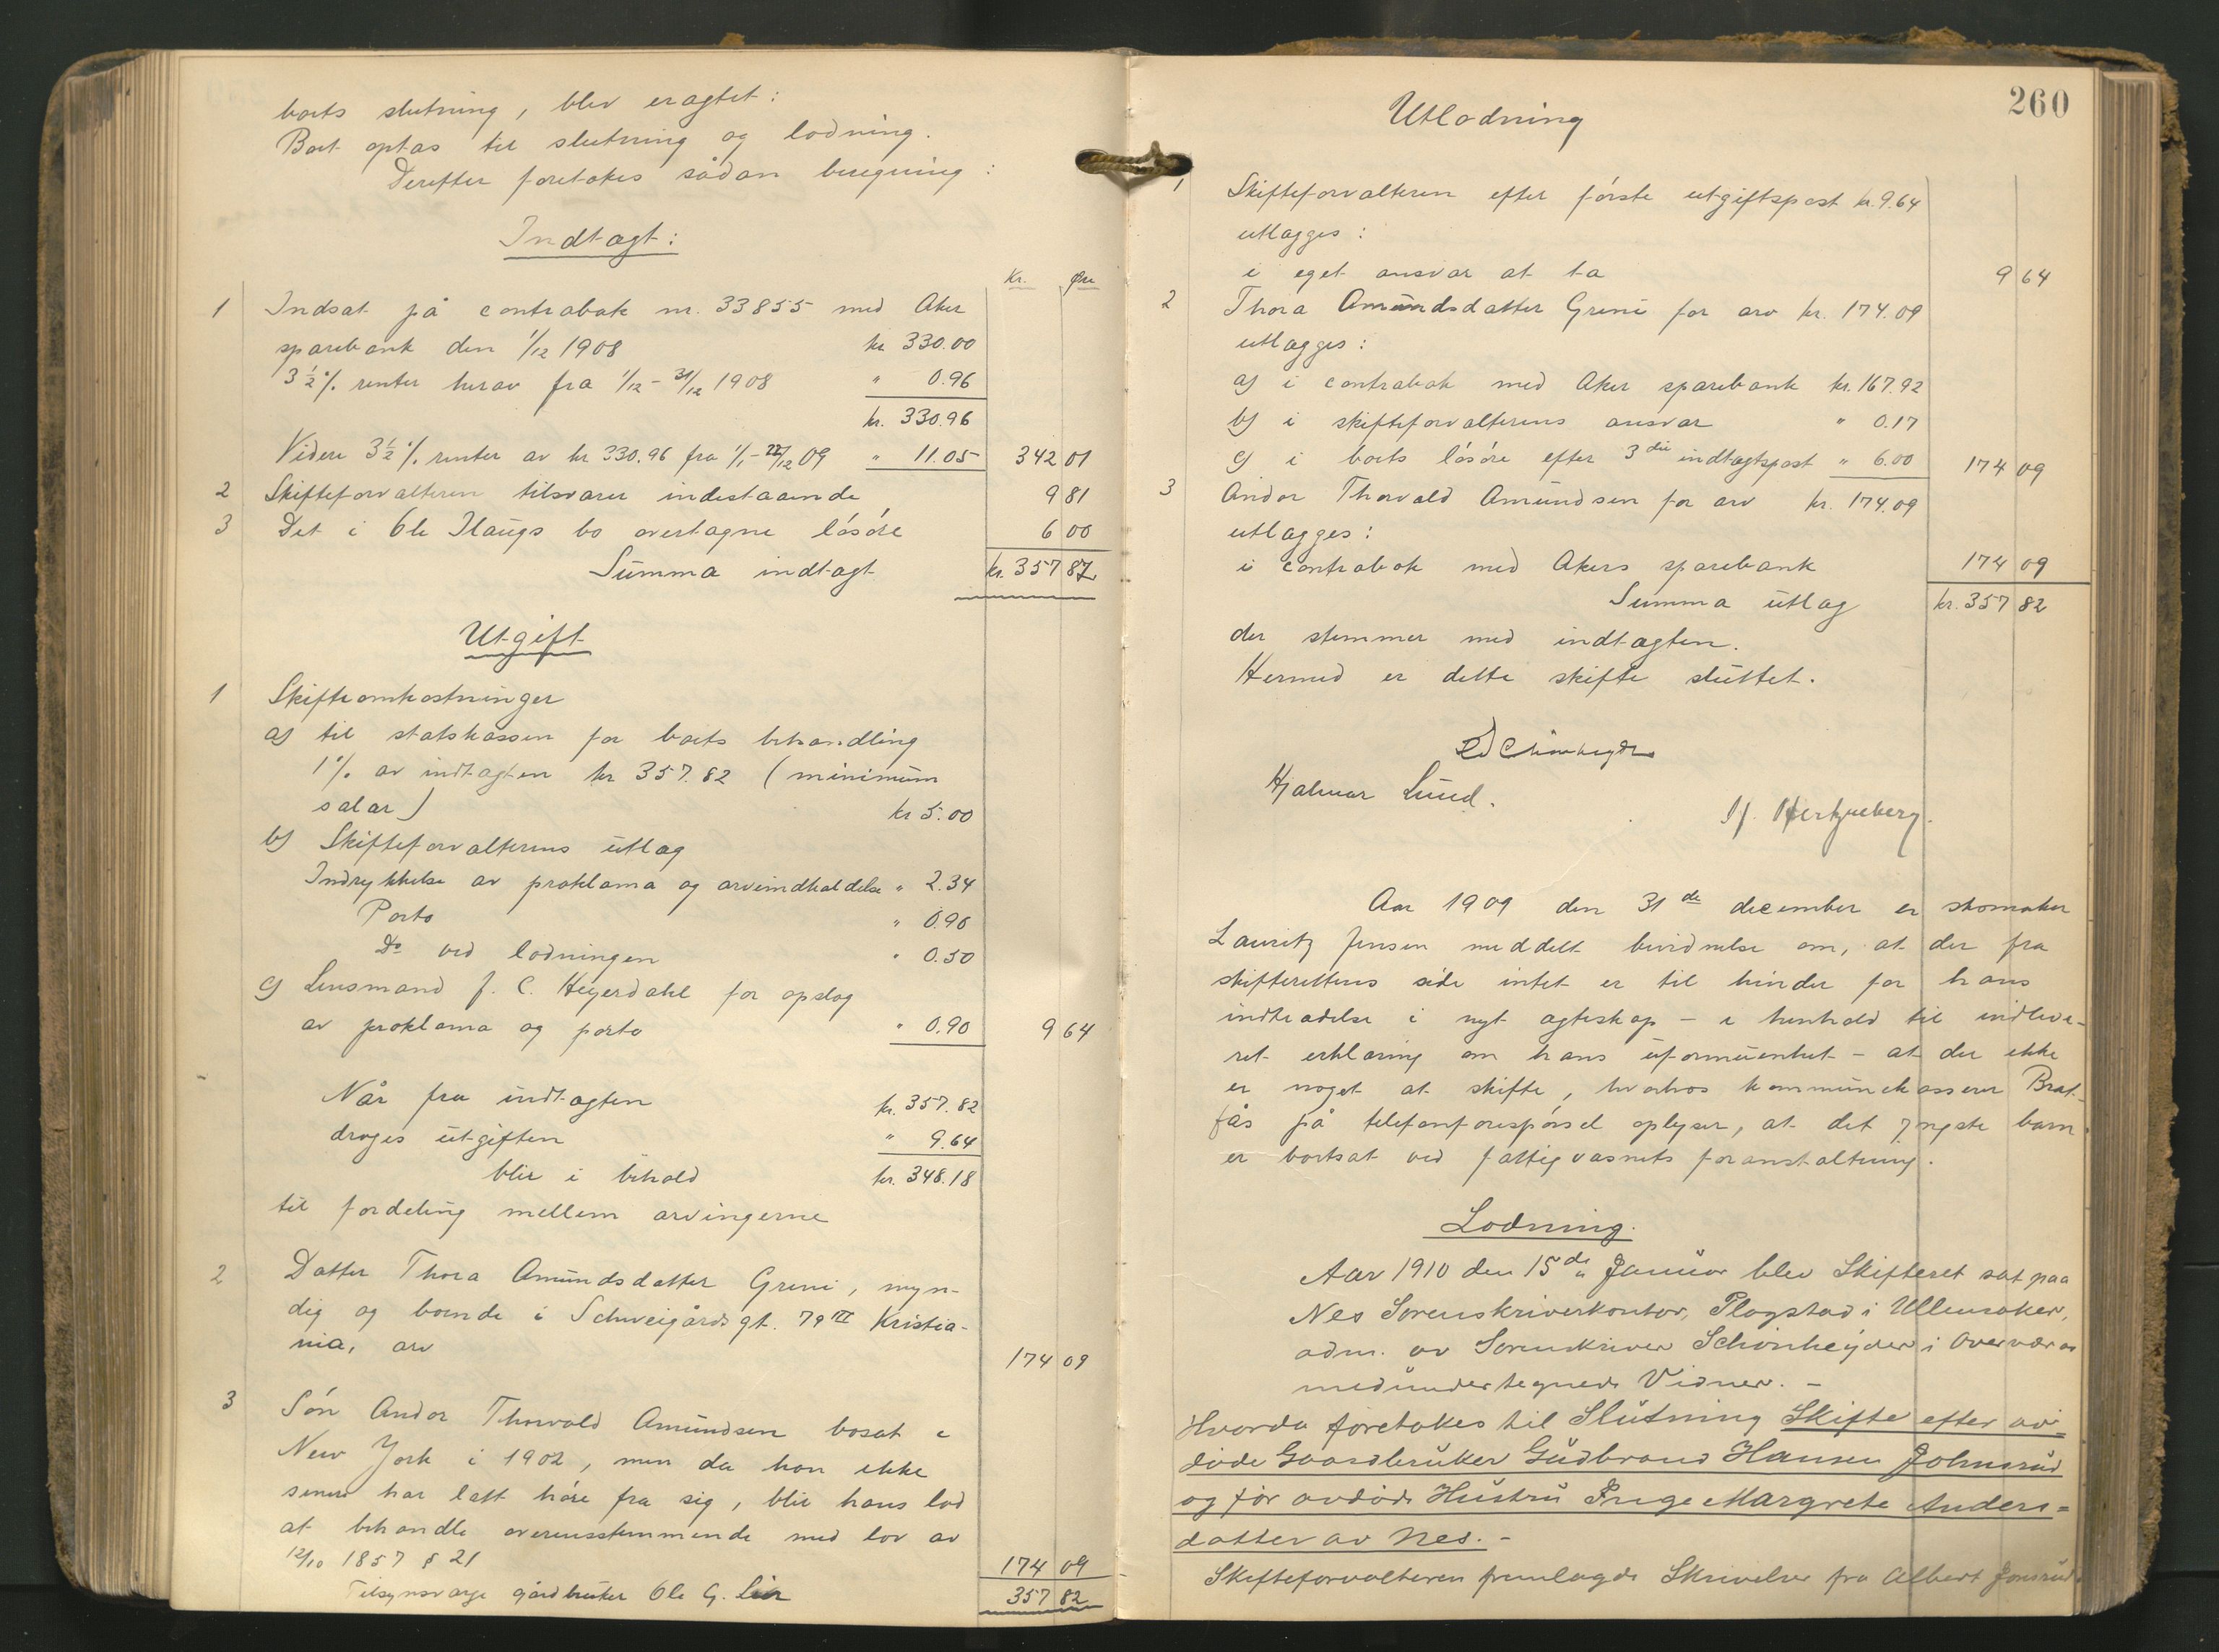 boets slutning, blev eragtet:
Boet optas til slutning og lodning.
Derefter foretokes sådan beregning:
Indtægt:
Kr. Øre
1 Indsat på contrabok nr. 33855 med Aker
sparebank den 1/12 1908 kr 330.00
3½% renter herav fra 1/12 - 31/12 1908 " 0.96
kr. 330.96
Videre 3½% renter av kr 330.96 fra 1/1 - 22/12 09 " 11.05 342 01
2 Skifteforvalteren tilsvarer indestaaende 9 81
3 Det i Ole Haugs bo overtagne løsøre 6 00
Summa indtægt kr. 357 82
Utgift
1 Skifteomkostninger
a) til statskassen for boets behandling
1% av indtægten kr 357.82 (minimum
salær) kr 5.00
b) Skifteforvalterens utlæg
Indrykkelse av proklama og arveindkaldelse " 2.34
Porto " 0.90
Do ved lodningen " 0.50
c) Lensmand J. C. Heyerdahl for opslag
av proklama og porto " 0.90 9 64
Når fra indtægten kr. 357.82
drages utgiften " 9.64
blir i behold kr. 348.18
til fordeling mellem arvingerne
2 Datter Thora Amundsdatter Greni, myn-
dig og boende i Schweigårds gt. 79 III Kristia-
nia, arv 174 09
3 Søn Andor Thorvald Amundsen bosat i
New York i 1902, men da han ikke
senere har latt høre fra sig, blir hans lod
at behandle overensstemmende med lov av
12/10 1857 § 21 174 09
Tilsynsværge gårdbruker Ole G. Lier 357 82
260
Utlodning
1 Skifteforvalteren efter første utgiftspost kr. 9.64
utlægges:
i eget ansvar at ta 9 64
2 Thora Amundsdatter Greni for arv kr. 174.09
utlægges:
a) i contrabok med Aker sparebank kr. 167.92
b) i skifteforvalterens ansvar " 0.17
c) i boets løsøre efter 3die indtægtspost " 6.00 174 09
3 Andor Thorvald Amundsen for arv kr. 174.09
utlægges:
i contrabok med Akers sparebank 174 09
Summa utlæg kr. 357 82
der stemmer med indtægten.
Hermed er dette skifte sluttet.
Ed Schönheyder
Hjalmar Lund. H. Hertzenberg.
Aar 1909 den 31 de december er skomaker
Lauritz Jensen meddelt bevidnelse om, at der fra
skifterettens side intet er til hinder for hans
indtrædelse i nyt ægteskap - i henhold til indleve-
ret erklæring om hans uformuenhet - at der ikke
er noget at skifte, hvorhos kommunekasserer Brat-
fås på telefonforespørsel oplyser, at det yngste barn
er bortsat ved fattigvæsnets foranstaltning.
Lodning.
Aar 1910 den 15 de Januar blev Skifteret sat paa
Nes Sorenskriverkontor, Plogstad i Ullensaker,
adm. av Sorenskriver Schönheyder i Overvær av
medundertegnede Vidner. -
Hvorda foretokes til Slutning Skifte efter av=
døde Gaardbruker Gudbrand Hansen Johnsrud
og før avdøde Hustru Inge Margrete Anders=
datter av Nes. -
Skifteforvalteren fremlagde Skrivelser fra Albert Jonsrud